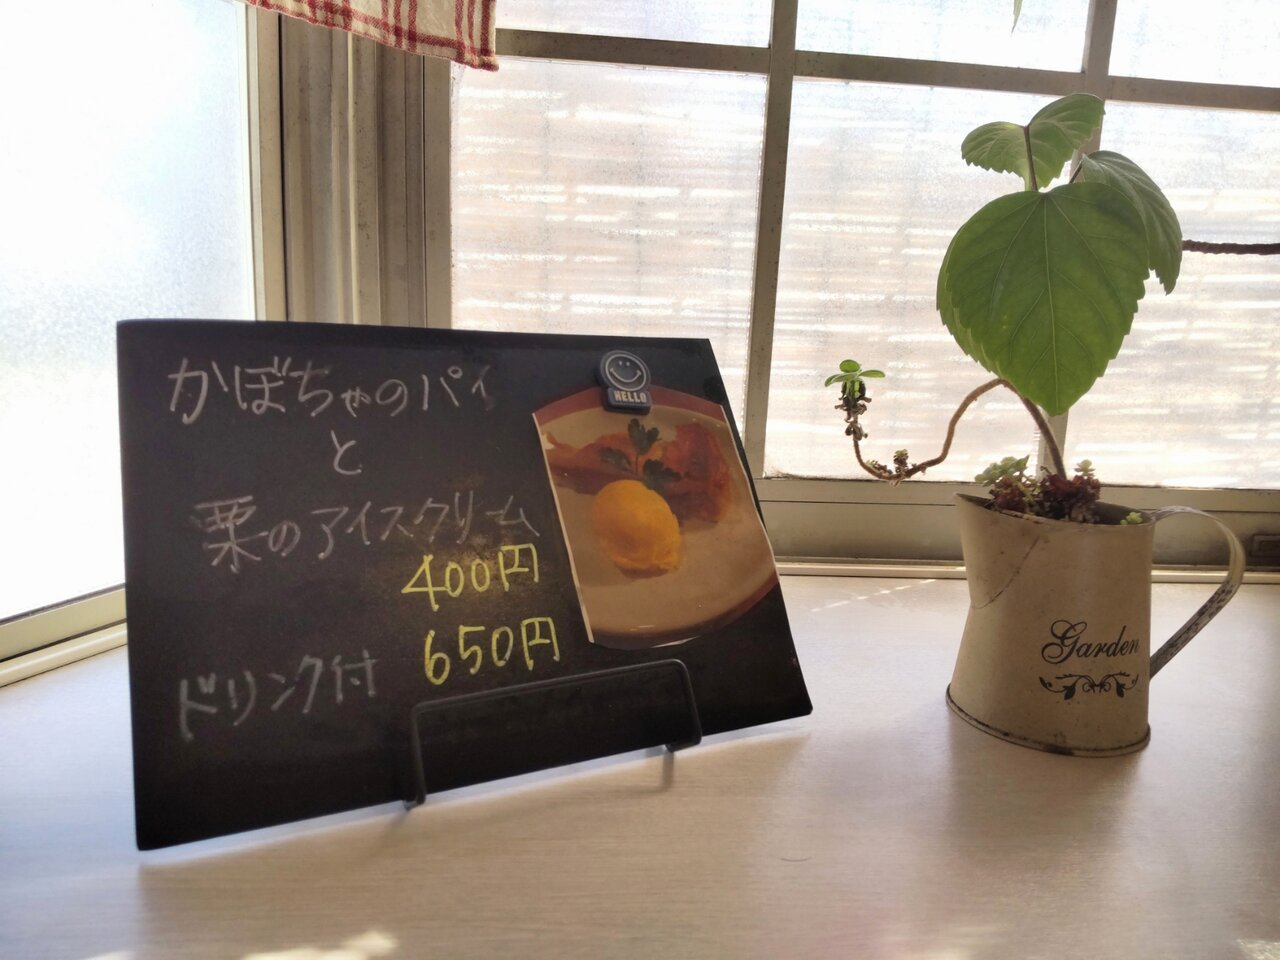 かぼちゃのパイ
と
栗のアイスクリーム
400円
ドリンク付 650円
HELLO
Garden